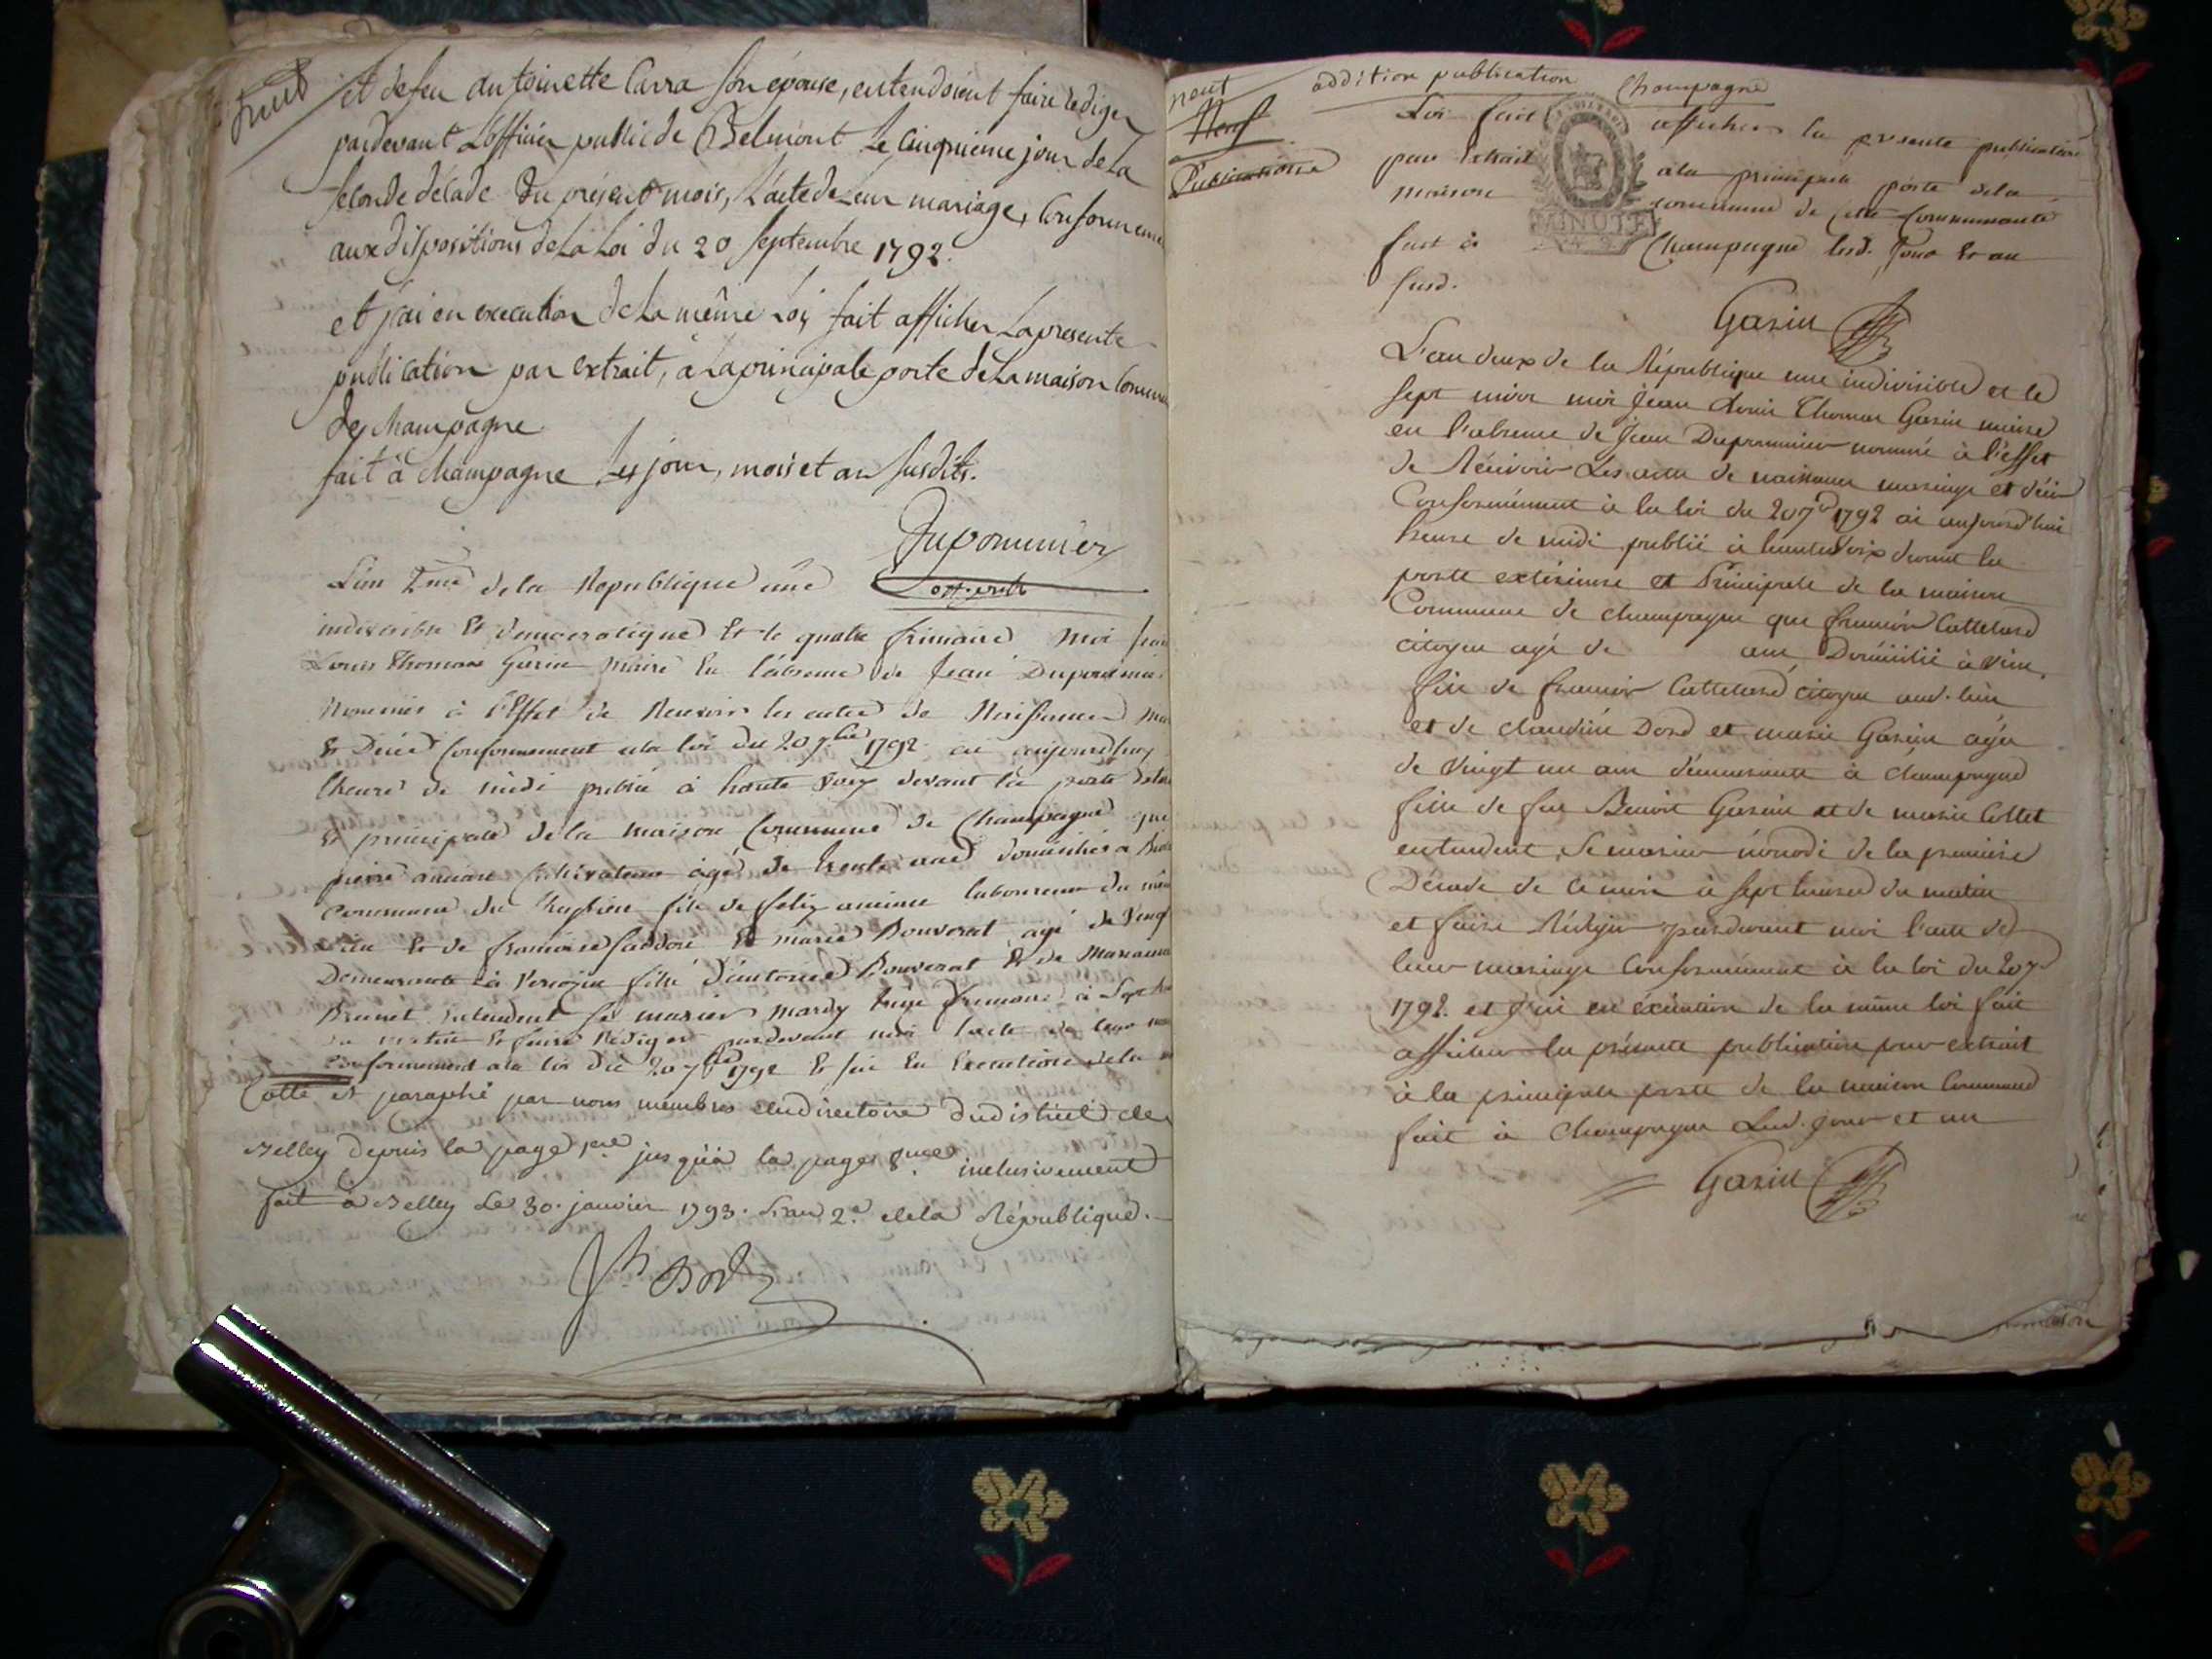 et de feu antoinette Carra son épouse, entendoient faire rediger
pardevant L'officier public de Belmont Le Cinquieme jour de La
seconde decade du présent mois, L'acte de Leur mariage, Conforme
aux dispositions de La Loi du 20 septembre 1792.
et j'ai en execution de La même Loy fait afficher La presente
publication par extrait, à La principale porte de La maison Commune
de champagne
fait à champagne Les jour, mois et an susdits.
Duponnier
off. public
L'an 2me de la Republique une
indivisible et democratique et le quatre frimaire moi Jean
Louis Thomas Garin maire en l'absence de Jean Duponnier
Nommés à l'Effet de Recevoir les actes de Naissances
et Décès Conformement a la loi du 20 7bre 1792 ai aujourdhuy
lheure de midi publié à haute voix devant la porte
et principale de la maison Commune de Champagne que
pierre cultivateur âgé de trente ans domicilié a
Commune de fils de felix laboureur du même
lieu et de francoise et marie Bouverat agé de vingt
Demeurante à fille d'antoine Bouverat et de
Brunet entendent se marier mardy frimaire à Sept
du matin et faire Rediger pardevant moi lacte de leur
Conformement a la loi du 20 7bre 1792 et jai en Execution de la
Cotté et paraphé par nous membres du directoire du district de
Belley depuis la page 1ere jusqu'à la page 8me inclusivement
fait à Belley Le 30. janvier 1793. L'an 2e. de la République.
neuf addition publication Champagne
Neuf
Publications
Loi fait afficher la presente publication
par Extrait a la principale porte de la
maison commune de cette Communauté
MINUTE
fait à Champagne lesd. Jour et an
susd.
Garin
L'an deux de la République une indivisible et le
sept mois moi Jean Louis Thomas Garin maire
en l'absence de Jean Duponnier nommé à l'effet
de Recevoir Les actes de naissance mariage et décès
Conformément à la loi du 20 7bre 1792 ai aujourd'hui
heure de midi publié à haute voix devant la
porte extérieure et Principale de la maison
Commune de champagne que francois Cattelard
citoyen agé de ans Domicilié à
fils de francois Cattelard citoyen aud. lieu
et de claudine Dord et marie Garin agée
de vingt un ans demeurante à champagne
fille de feu Benoit Garin et de marie Collet
entendent se marier nonodi de la premiere
Décade de ce mois à sept heures du matin
et faire Rédiger pardevant moi l'acte de
leur mariage Conformément à la loi du 20 7bre
1792. et j'ai en éxécution de la même loi fait
afficher la présente publication par extrait
à la principale porte de la maison Commune
fait à Champagne Lesd. jour et an
Garin